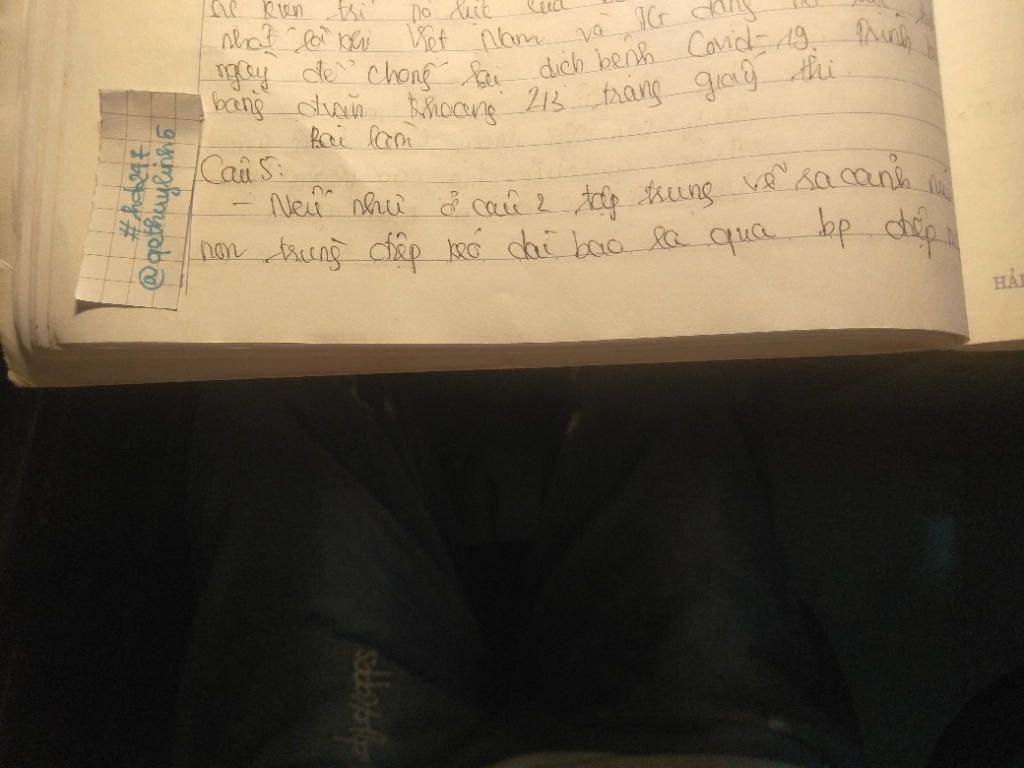 sự kiên trì nỗ lực của
nhất là khi Việt Nam và TG đang nỗ
ngày để chống lại dịch bệnh Covid-19. Trình b
bằng đoạn khoảng 2/3 trang giấy thi
Bài làm
Câu 5:
- Nếu như ở câu 2 tập trung về sa cảnh nú
non trùng điệp kéo dài bao la qua bp điệp n
#hob247
HẢI